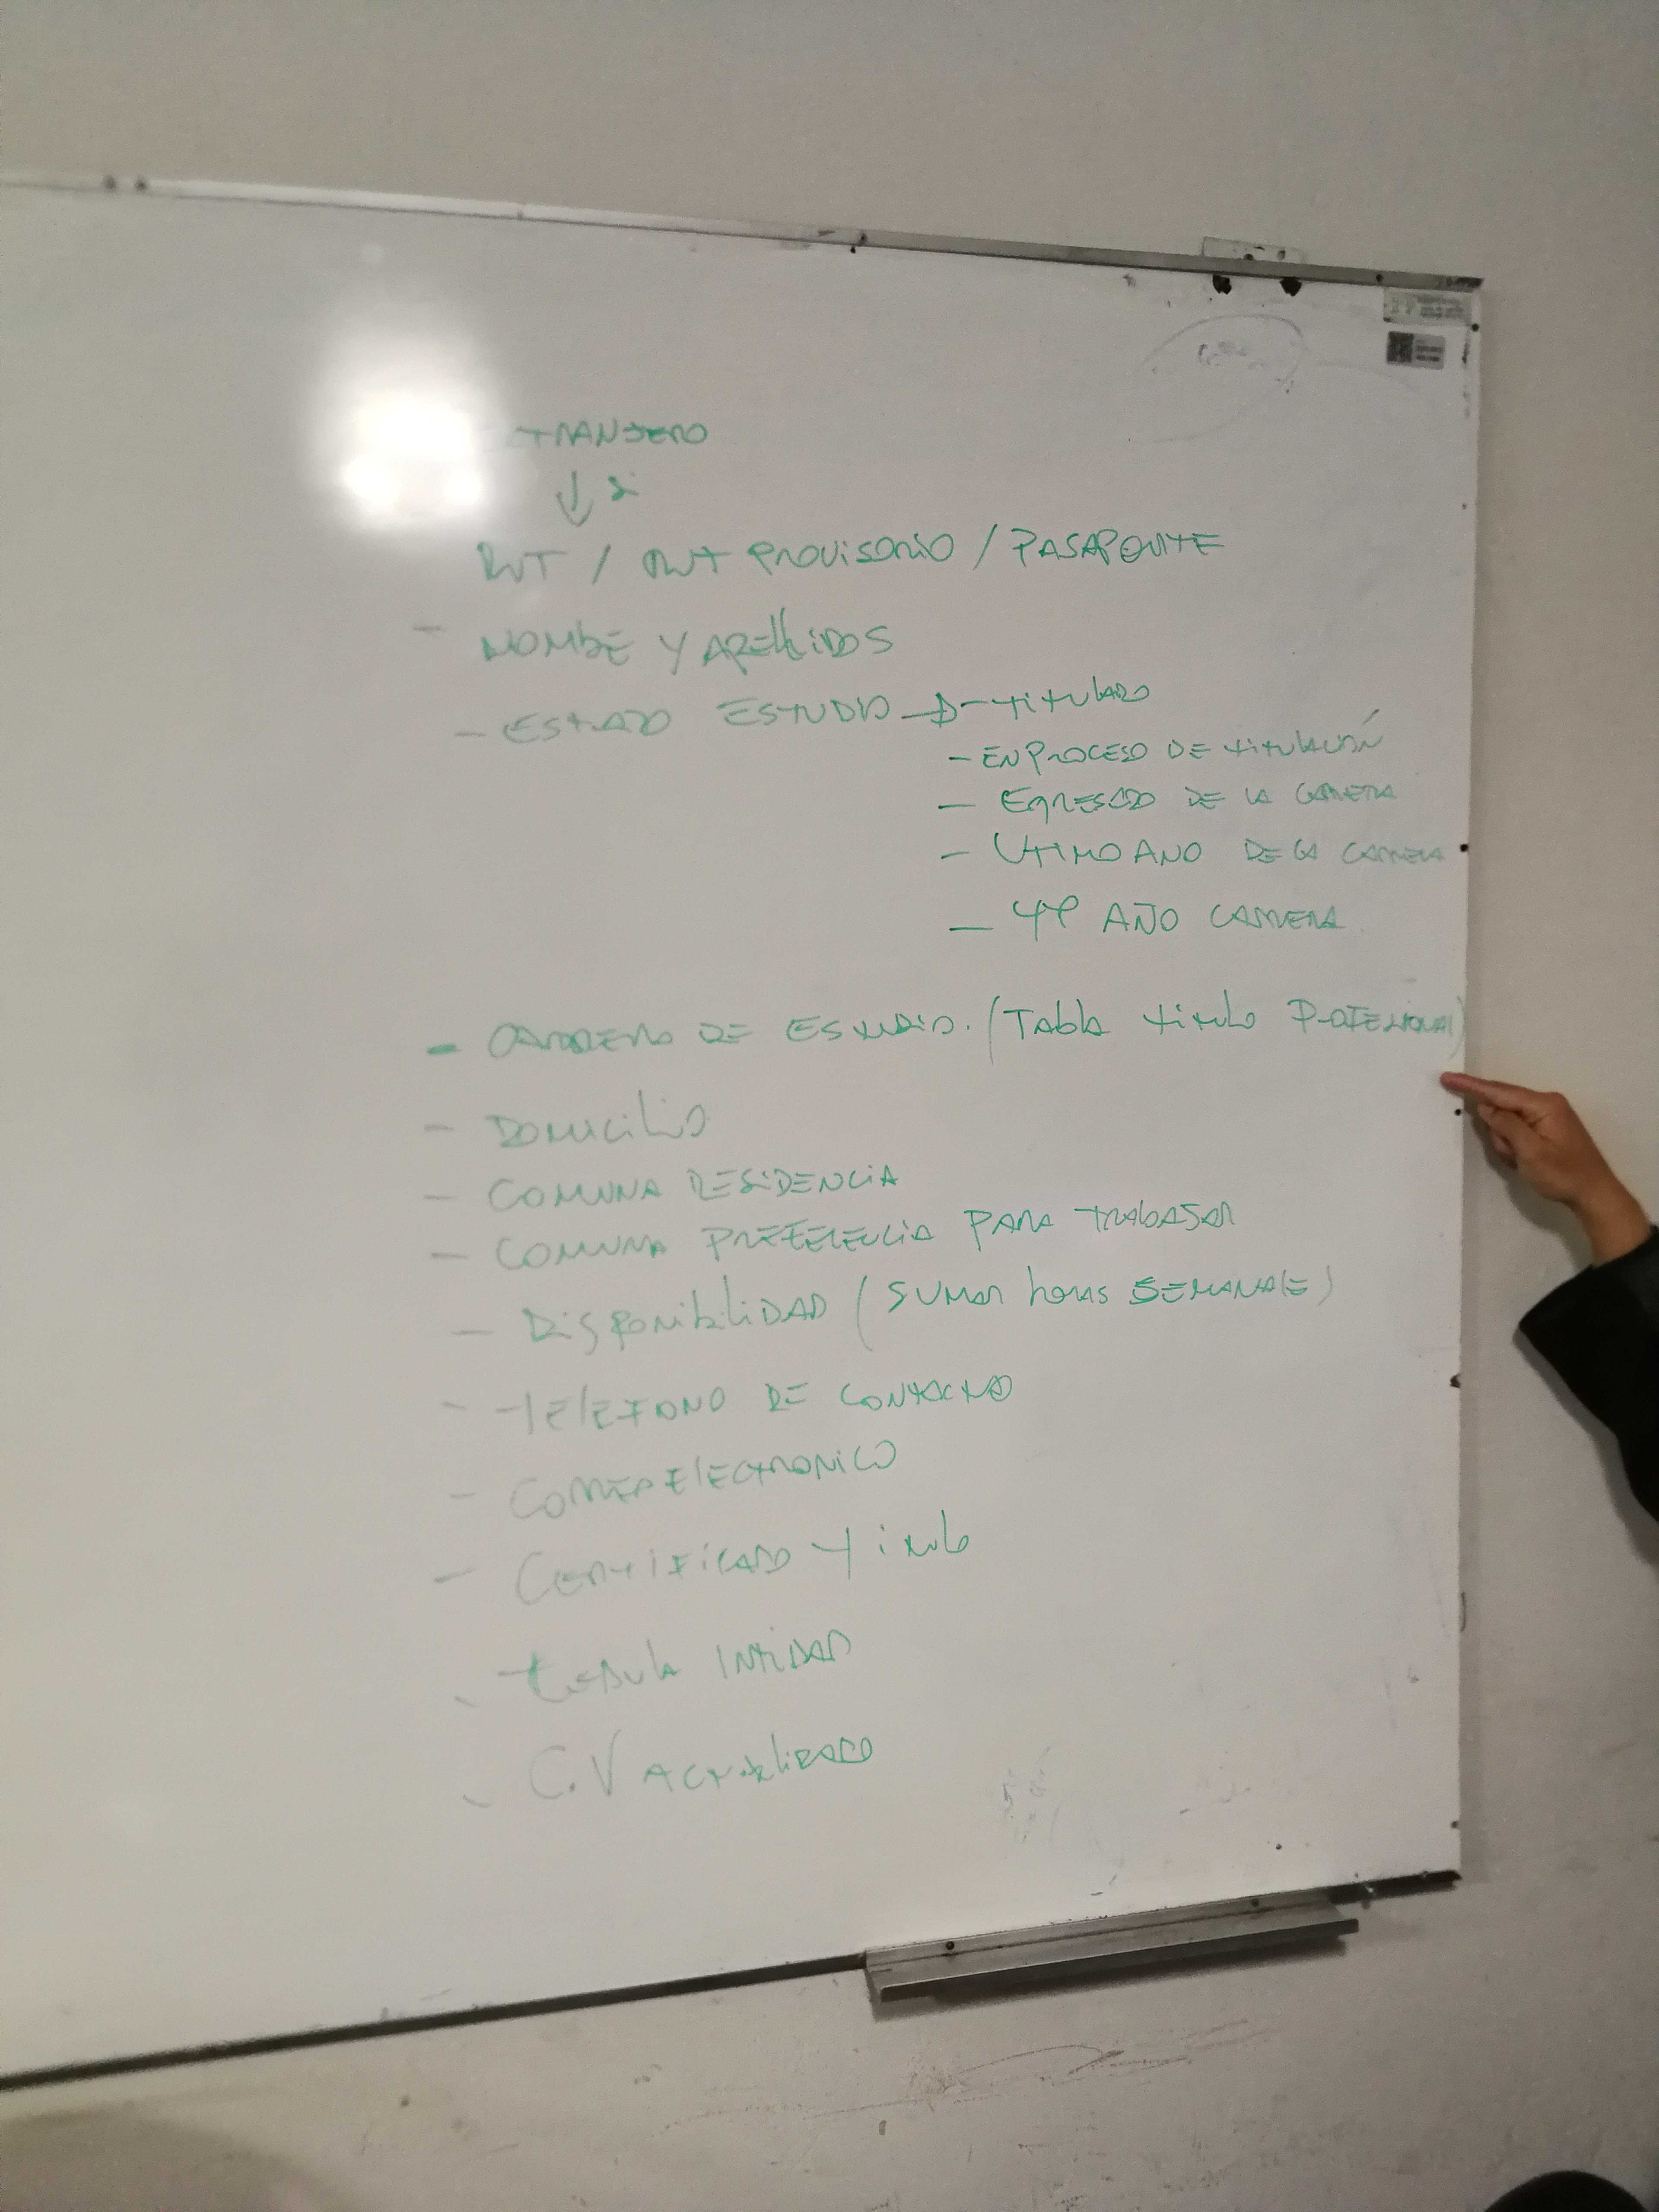 TRANJERO
↓ si
RUT / RUT PROVISORIO / PASAPORTE
- NOMBE Y APELLIDOS
- ESTADO ESTUDIO → - titulado
- EN PROCESO DE titulación
- EGRESADO DE LA CARRERA
- UTIMO AÑO DE LA CARRERA
- 4º AÑO CARRERA
- CARRERA DE ESTUDIO. (Tabla titulo PROFESIONAL)
- DOMICILIO
- COMUNA RESIDENCIA
- COMUNA PREFERENCIA PARA TRABAJAR
- DISPONIBILIDAD (SUMAR horas SEMANALES)
- TELEFONO DE CONTACTO
- CORREO ELECTRONICO
- CERTIFICADO titulo
- CEDULA INTIDAD
- C.V ACTUALIZADO